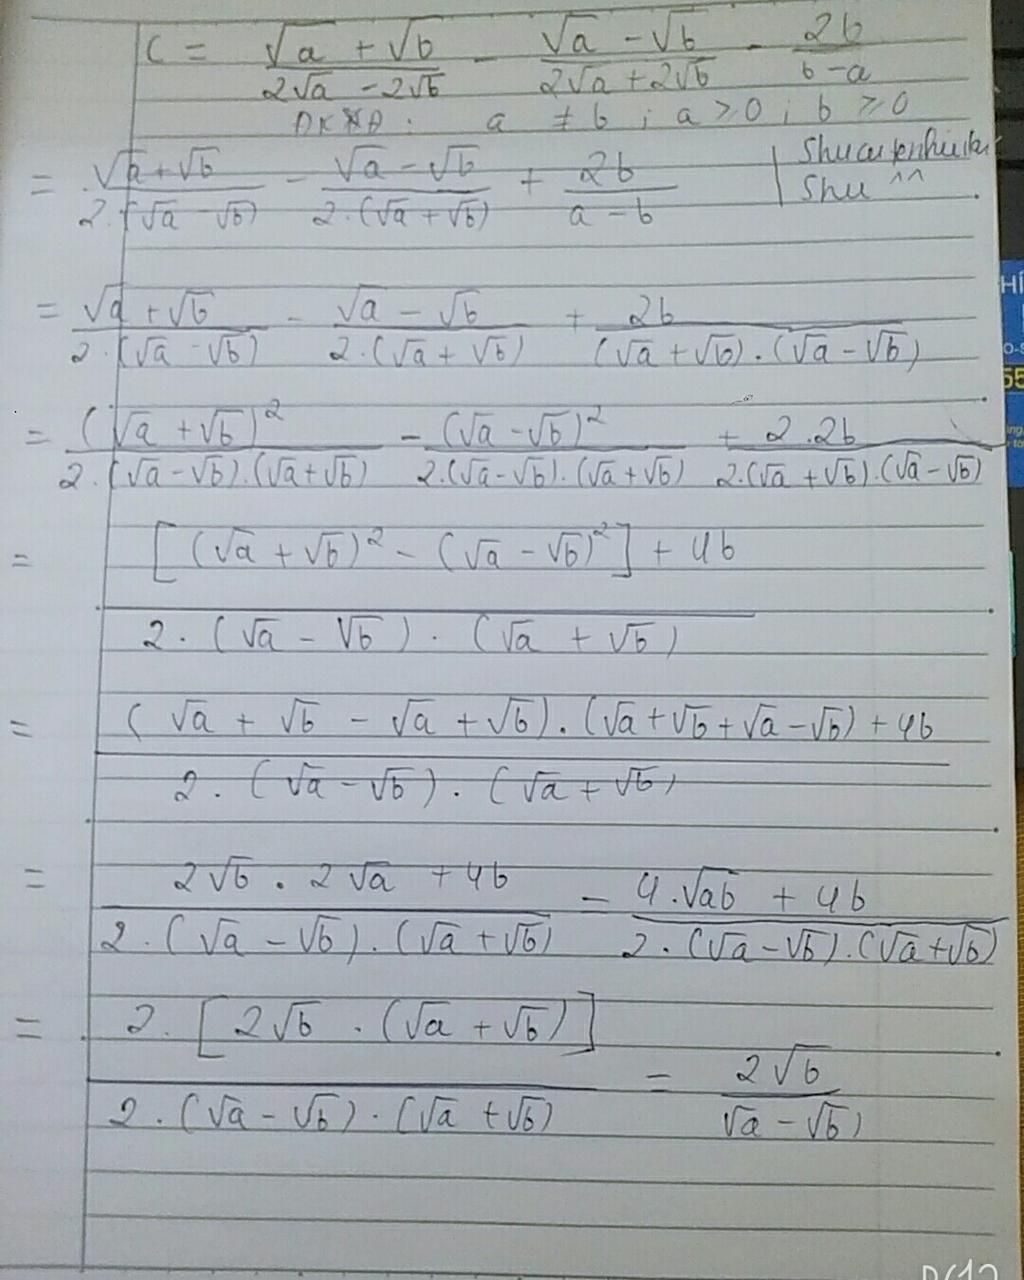 C = (√a + √b)/(2√a − 2√b) − (√a − √b)/(2√a + 2√b) − 2b/(b − a)
ĐKXĐ : a ≠ b ; a ≥ 0 ; b ≥ 0
= (√a + √b)/(2.(√a − √b)) − (√a − √b)/(2.(√a + √b)) + 2b/(a − b)
Shu ^^
= (√a + √b)/(2.(√a − √b)) − (√a − √b)/(2.(√a + √b)) + 2b/((√a + √b).(√a − √b))
= (√a + √b)²/(2.(√a − √b).(√a + √b)) − (√a − √b)²/(2.(√a − √b).(√a + √b)) + 2.2b/(2.(√a + √b).(√a − √b))
= ([(√a + √b)² − (√a − √b)²] + 4b)/(2.(√a − √b).(√a + √b))
= ((√a + √b − √a + √b).(√a + √b + √a − √b) + 4b)/(2.(√a − √b).(√a + √b))
= (2√b . 2√a + 4b)/(2.(√a − √b).(√a + √b)) = (4.√ab + 4b)/(2.(√a − √b).(√a + √b))
= 2.[2√b . (√a + √b)]/(2.(√a − √b).(√a + √b)) = 2√b/(√a − √b)